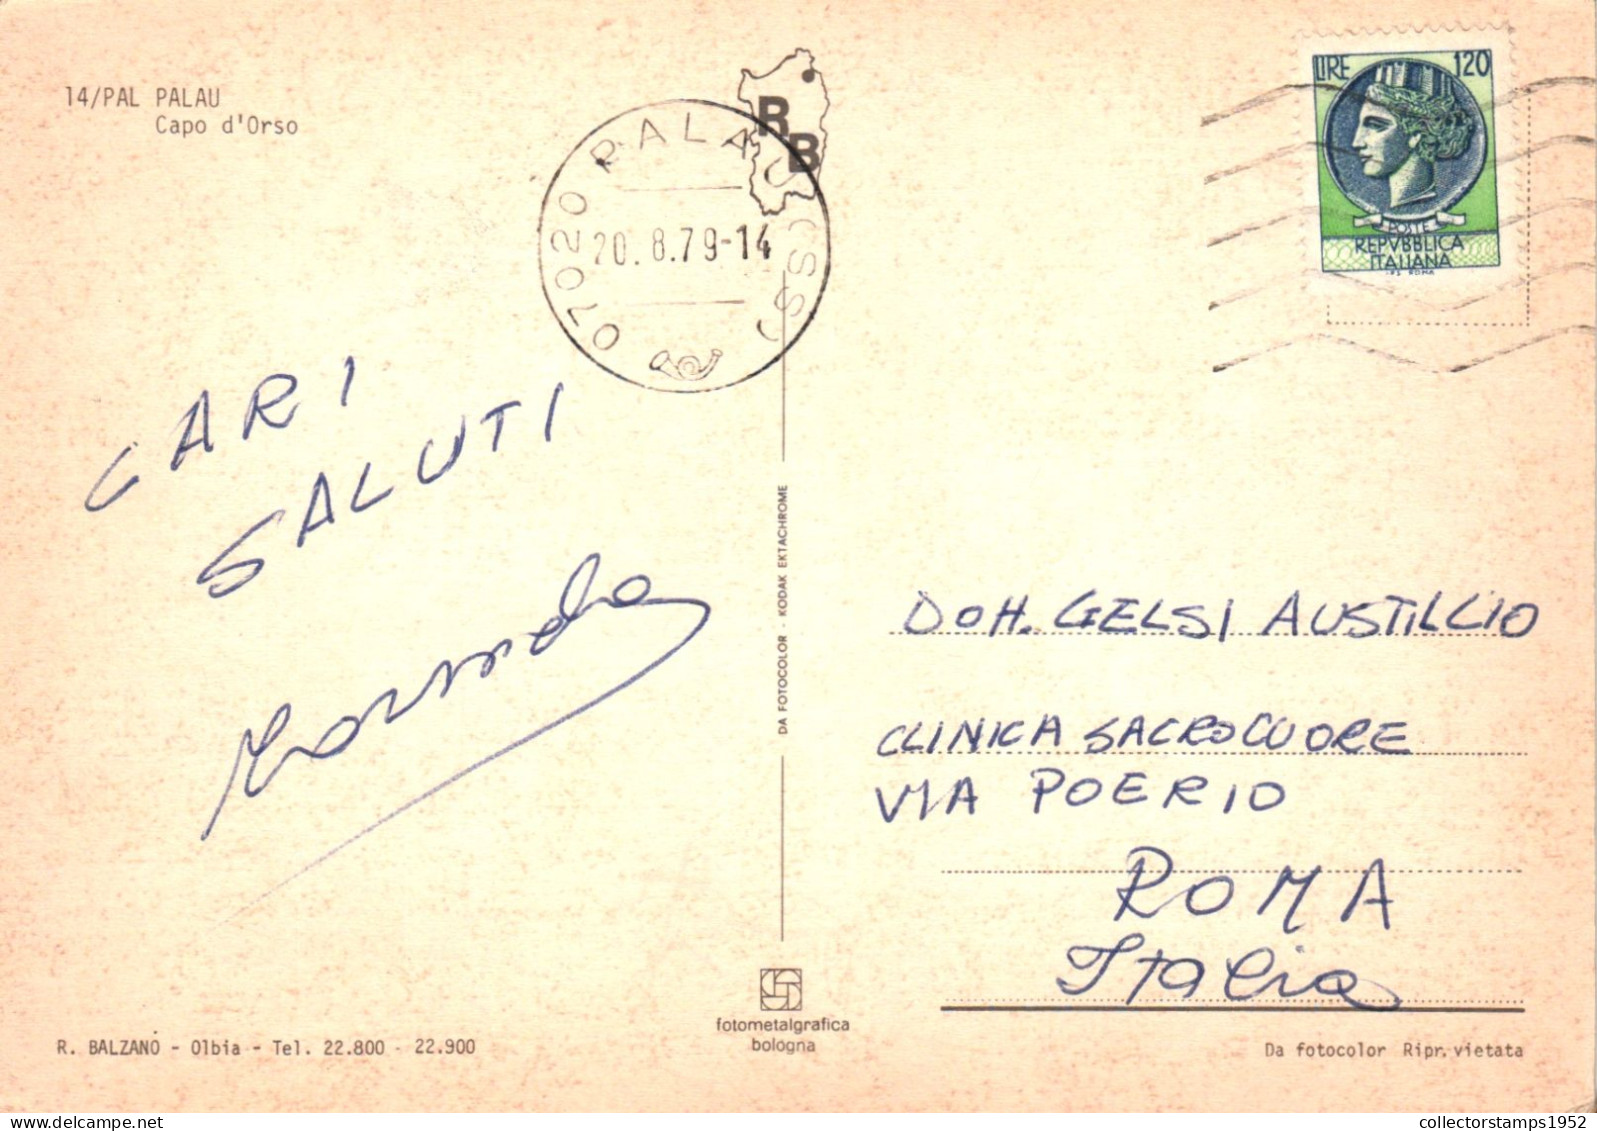 14/PAL PALAU
Capo d'Orso
R
B
07020 PALAU (SS)
20.8.79-14
LIRE 120
POSTE
REPVBBLICA
ITALIANA
I.P.S. ROMA
CARI
SALUTI
DA FOTOCOLOR - KODAK EKTACHROME
DOTT. GELSI AUSTILLIO
CLINICA SACROCUORE
VIA POERIO
ROMA
Italia
fotometalgrafica
bologna
R. BALZANO - Olbia - Tel. 22.800 - 22.900
Da fotocolor Ripr. vietata
collectorstamps1952